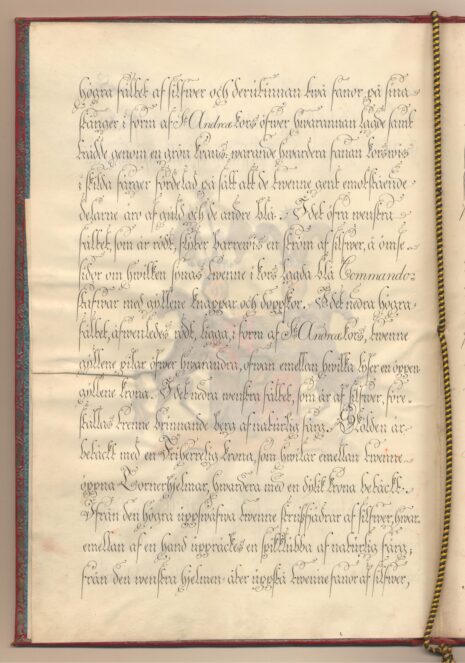 högra fältet af silfwer och derutinnan twå fanor på sina
stänger i form af St Andreæ kors öfwer hwarannan lagde samt
trädde genom en grön krans, warande hwardera fanan korswis
i skilda färger fördelad på sätt att de twenne gent emot stående
delarne äro af guld och de andre blå. I det öfra wenstra
fältet, som är rödt, flyter barrewis en ström af silfwer, å ömse
sidor om hwilken synas twenne i kors lagda blå Commando-
stafwar med gyllene knappar och doppskor. I det nedra högra
fältet, äfwenledes rödt, ligga, i form af St Andreæ kors, twenne
gyllene pilar öfwer hwarandra, ofwan emellan hwilka ses en öppen
gyllene krona. I det nedra wenstra fältet, som är af silfwer, före-
ställas trenne brinnande berg af naturlig färg. Skölden är
betäckt med en Friherrelig krona, som hwilar emellan twenne
öppna Tornerhjelmar, hwardera med en dylik krona betäckt.
Ifrån den högra uppswäfwa twenne strutsfjädrar af silfwer, hwar-
emellan af en hand uppräckes en spikklubba af naturlig färg;
från den wenstra hjelmen åter uppstå twenne fanor af silfwer,